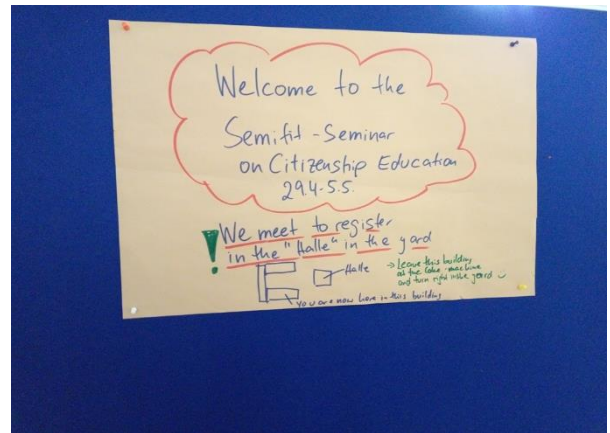 Welcome to the
Semifit-Seminar
on Citizenship Education
29.4-5.5.
! We meet to register
in the "Halle" in the yard
Halle
→ Leave this building
at the Coke-machine
and turn right in the yard
You are now here in this building